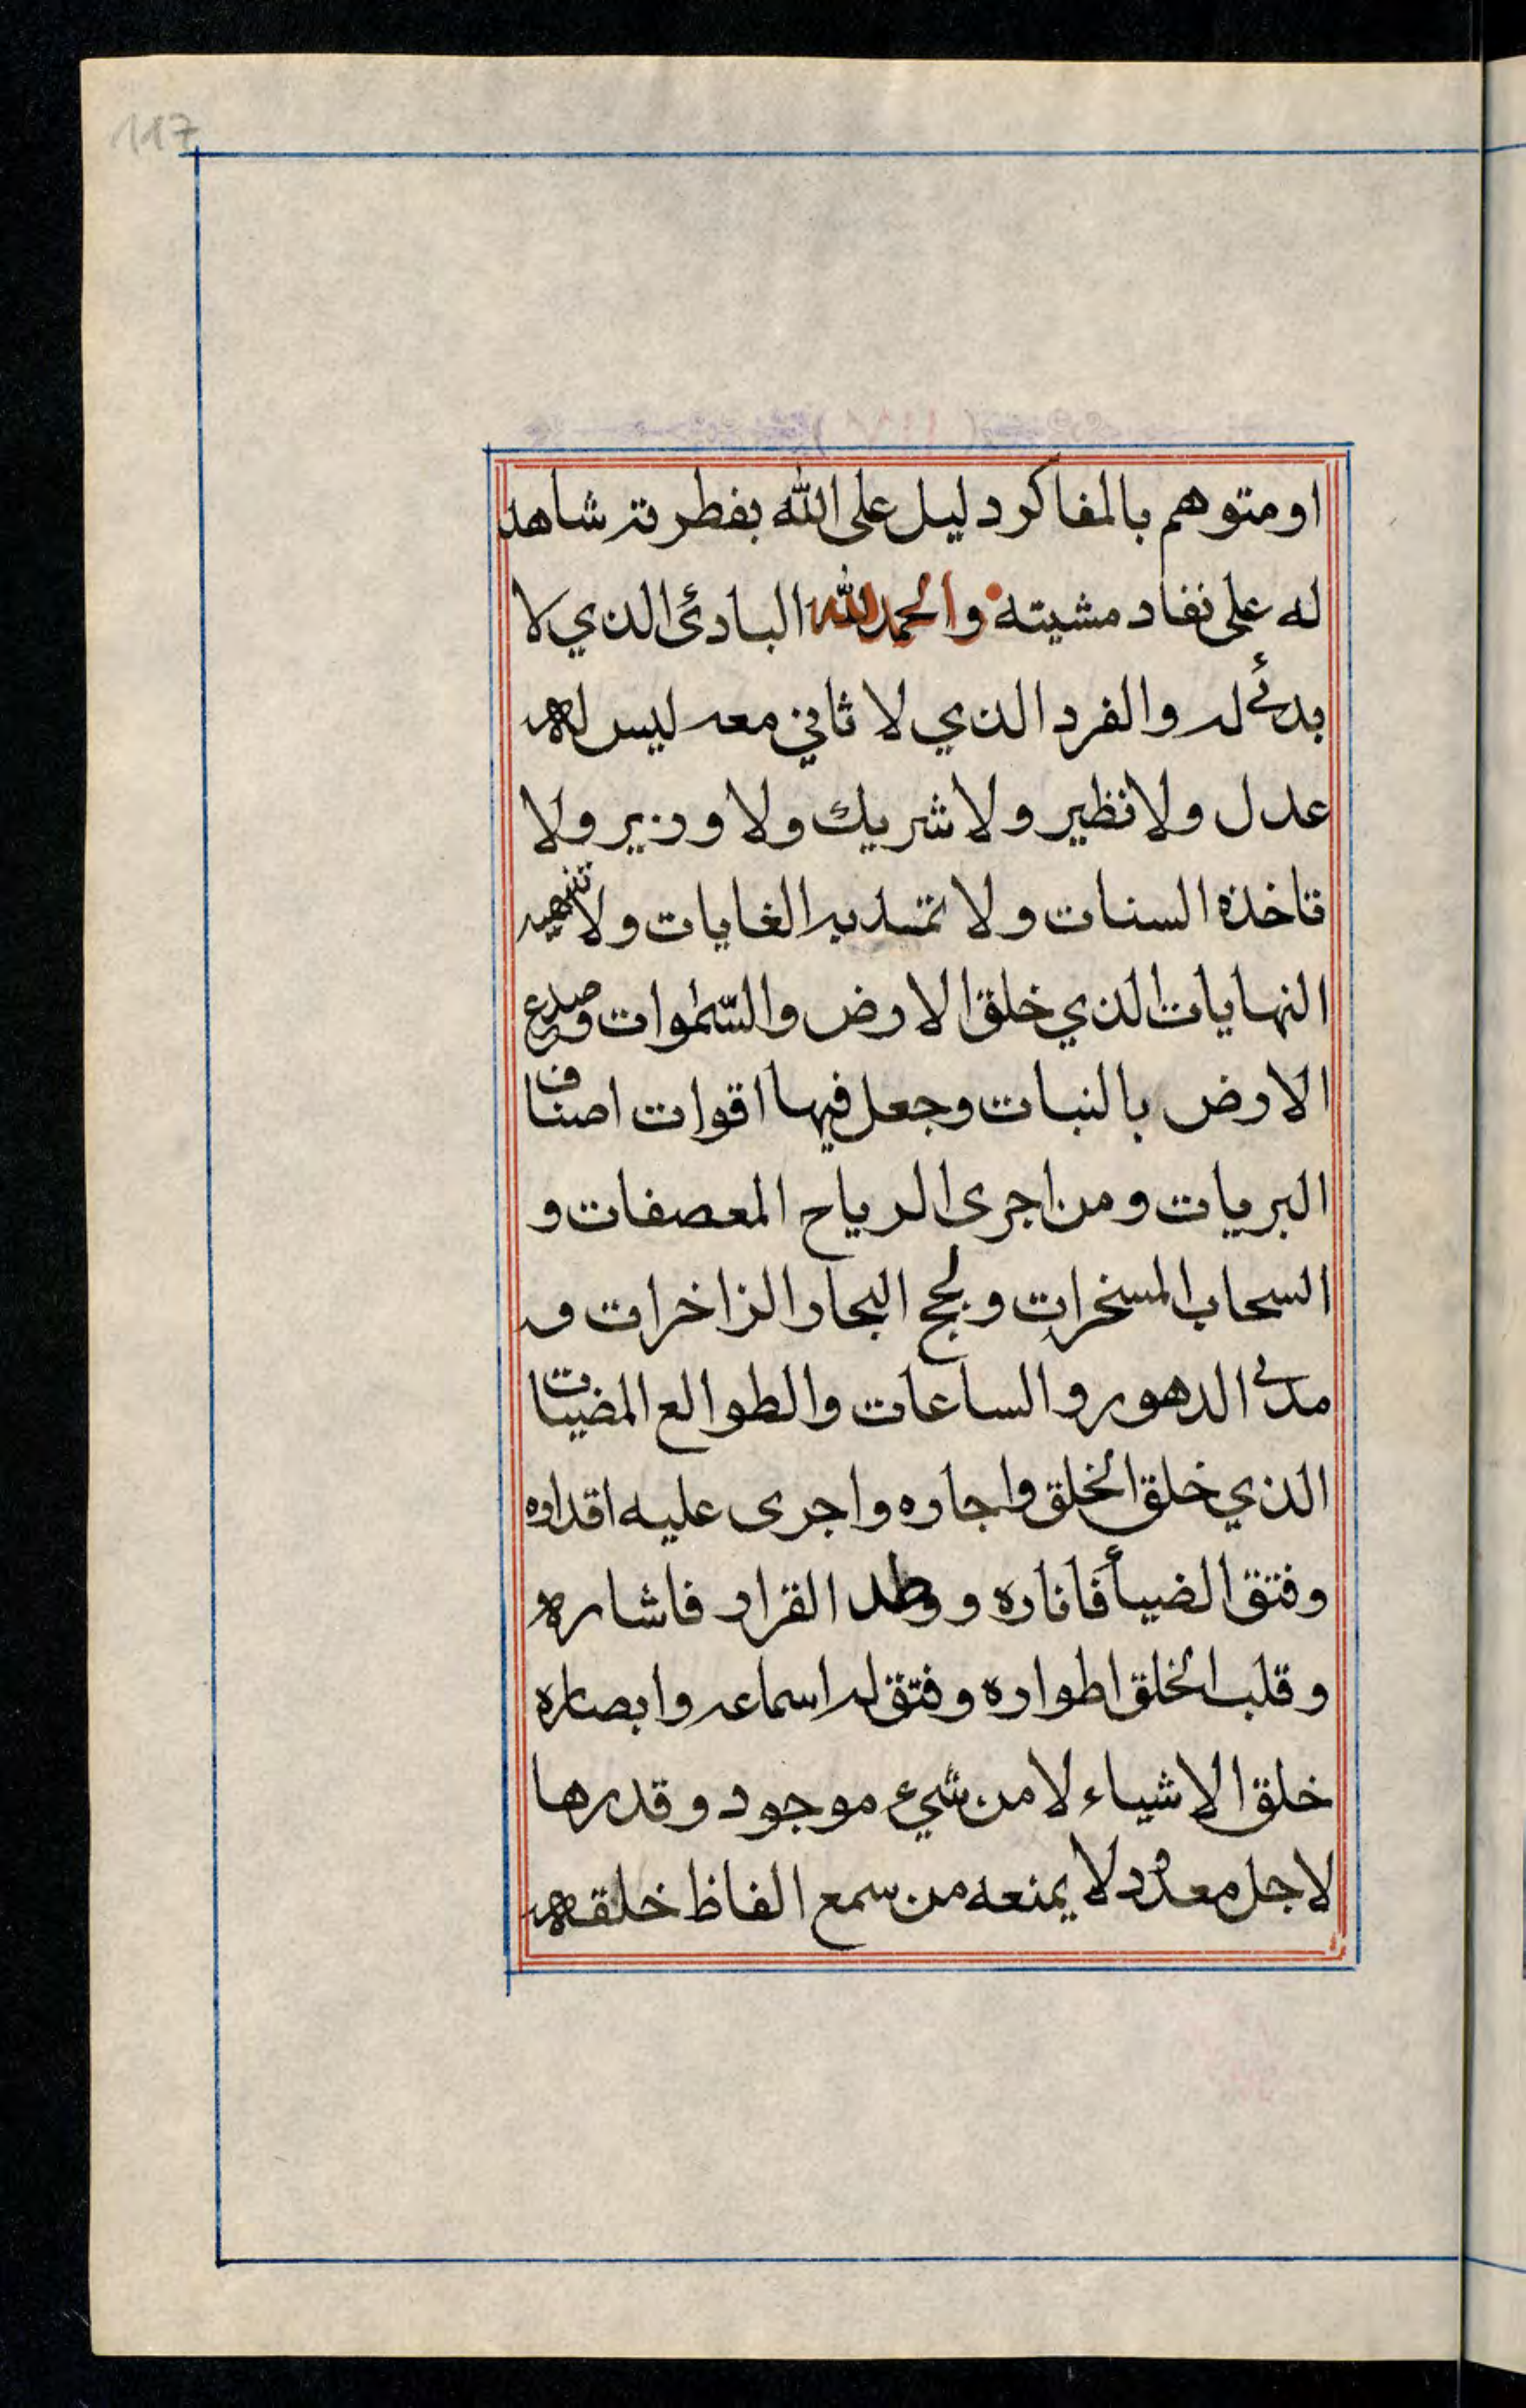 117
او متوهم بالمفاكر دليل على الله بفطرته شاهد
له على نفاد مشيته والحمد لله البادئ الذي لا
بدئ له والفرد الذي لا ثاني معه ليس له
عدل ولا نظير ولا شريك ولا وزير ولا
تاخذه السنات ولا تمتد به الغايات ولا تنهيه
النهايات الذي خلق الارض والسموات وصدع
الارض بالنبات وجعل فيها اقوات اصناف
البريات ومن اجرى الرياح المعصفات و
السحاب المسخرات ولجج البحار الزاخرات و
مدئ الدهور والساعات والطوالع المضيبات
الذي خلق الخلق واجاره واجرى عليه اقداره
وفتق الضيأ فاناره ووطد القرار فاشاره
وقلب الخلق اطواره وفتق له اسماعه وابصاره
خلق الاشياء لا من شيء موجود وقدرها
لاجل معدود لا يمنعه من سمع الفاظ خلقه